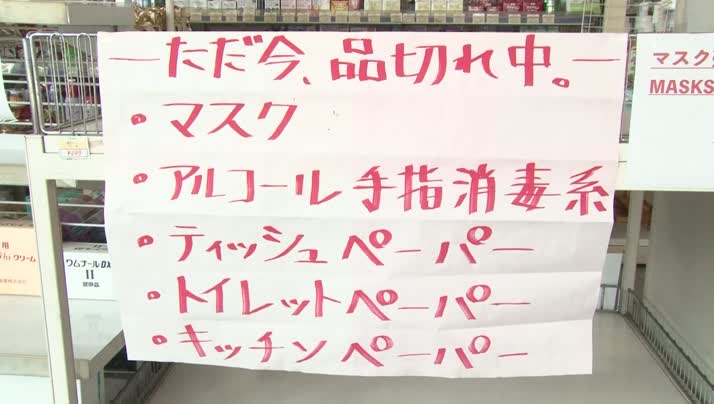 ーただ今、品切れ中。ー
・マスク
・アルコール手指消毒系
・ティッシュペーパー
・トイレットペーパー
・キッチンペーパー
マスク
MASKS
用
クリーム
ワムナールDX
II
試供品